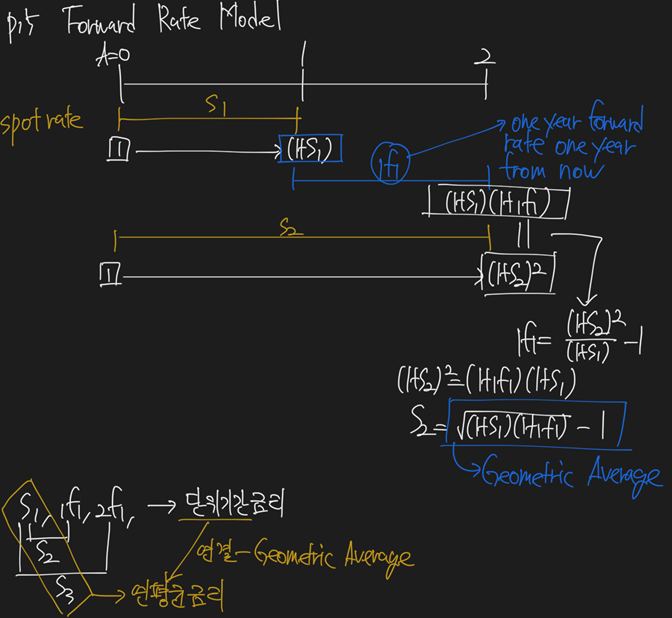 p.5 Forward Rate Model
A=0 1 2
spot rate S₁
1 (1+S₁) ₁f₁ one year forward
rate one year
from now
(1+S₁)(1+₁f₁)
S₂ ||
1 (1+S₂)²
₁f₁= (1+S₂)²/(1+S₁) -1
(1+S₂)²=(1+₁f₁)(1+S₁)
S₂= √(1+S₁)(1+₁f₁) - 1
Geometric Average
S₁, ₁f₁, ₂f₁, → 단위기간금리
S₂ 연결-Geometric Average
S₃ 연평균금리